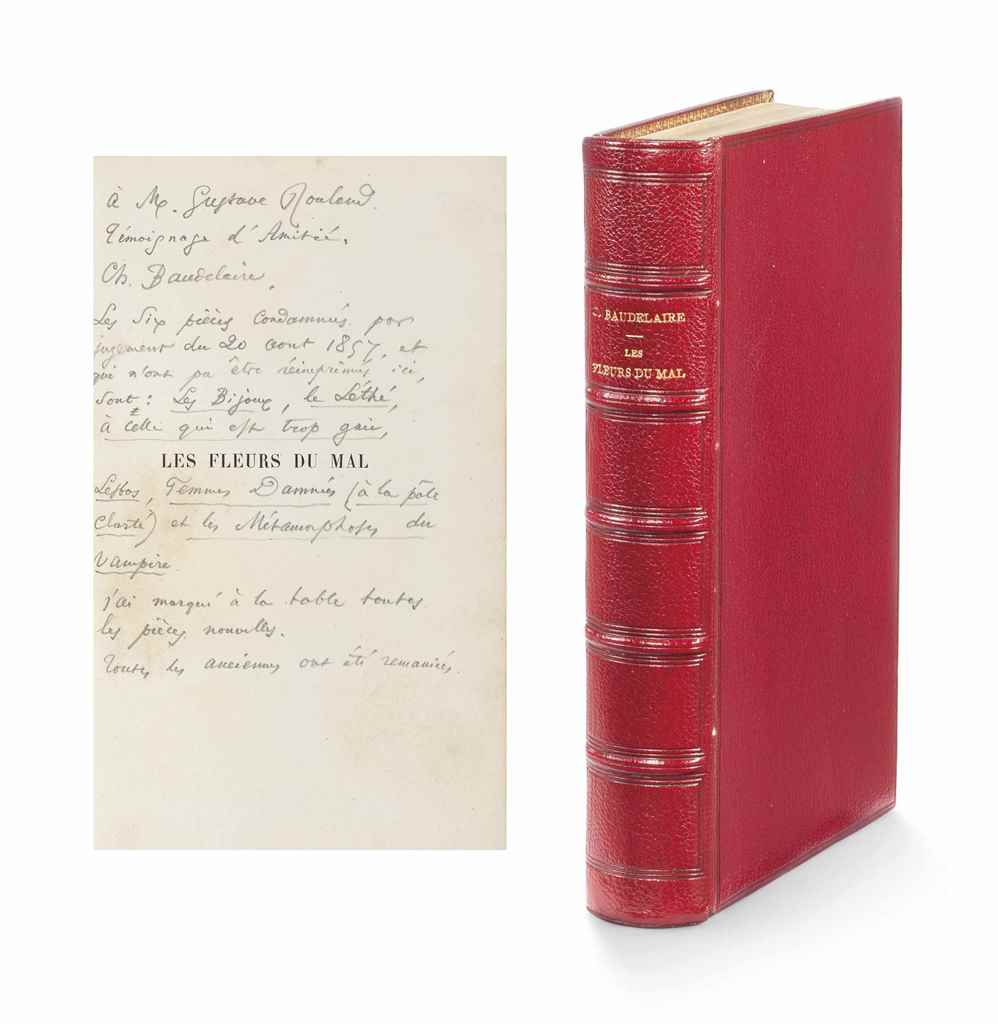 à M. Gustave Rouland.
Témoignage d'Amitié.
Ch. Baudelaire.
Les Six pièces Condamnées par
jugement du 20 aout 1857, et
qui n'ont pu être réimprimées ici,
Sont : Les Bijoux, le Léthé,
à Celle qui est trop gaie,
LES FLEURS DU MAL
Lesbos, Femmes Damnées (à la pâle
Clarté) et les Métamorphoses du
Vampire.
j'ai marqué à la table toutes
les pièces nouvelles.
Toutes les anciennes ont été remaniées.
C. BAUDELAIRE
LES
FLEURS DU MAL